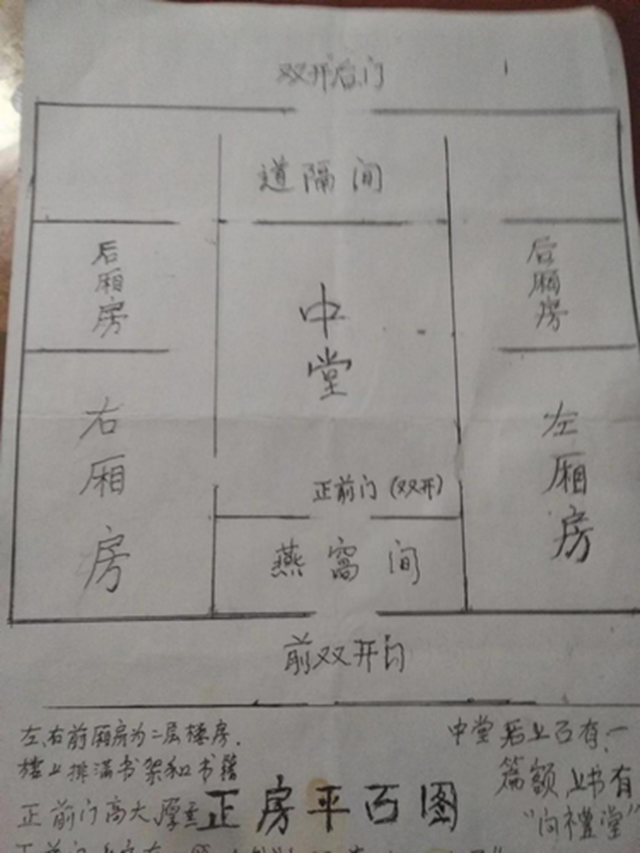 双开后门
道隔间
后厢房
后厢房
中堂
右厢房
左厢房
正前门（双开）
燕窝间
前双开门
左、右前厢房为二层楼房.
楼上排满书架和书籍
正前门高大厚重
中堂后上方有一
篇额上书有
"向禮堂"
正房平面图